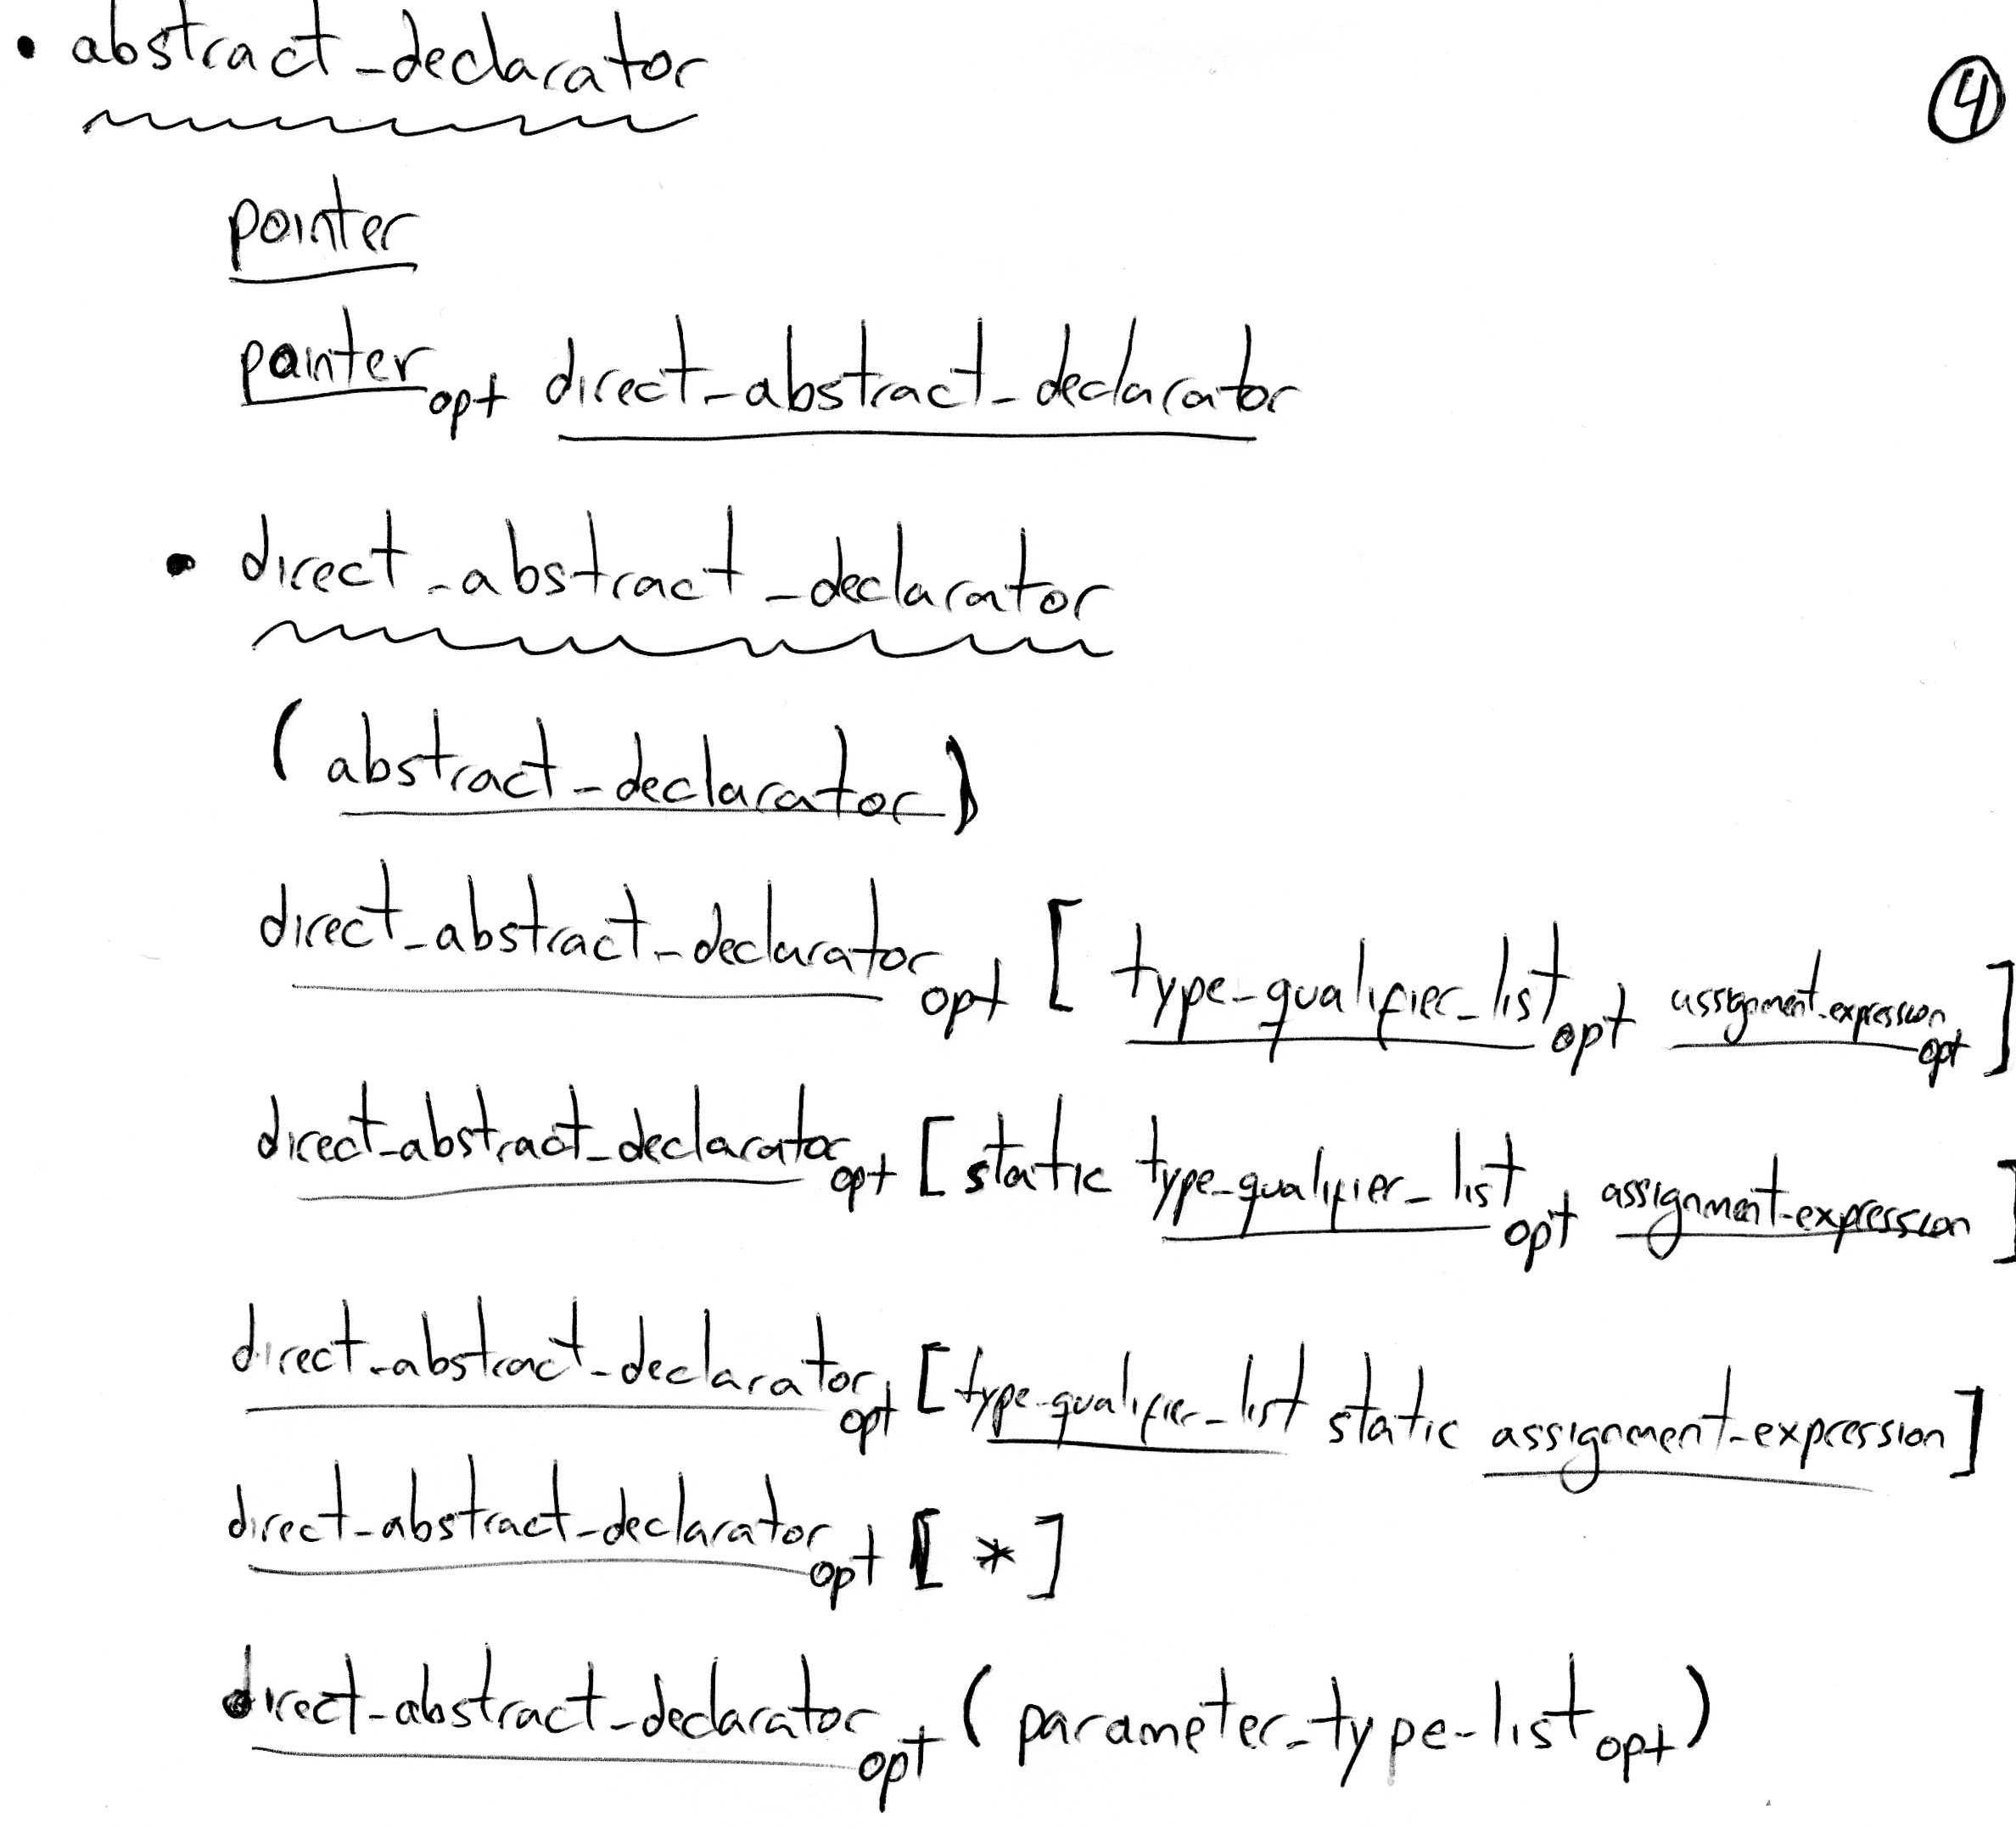 • abstract-declarator
④
pointer
pointer opt direct-abstract-declarator
• direct-abstract-declarator
(abstract-declarator)
direct-abstract-declarator opt [ type-qualifier-list opt assignment-expression opt ]
direct-abstract-declarator opt [ static type-qualifier-list opt assignment-expression ]
direct-abstract-declarator opt [ type-qualifier-list static assignment-expression ]
direct-abstract-declarator opt [ * ]
direct-abstract-declarator opt ( parameter-type-list opt )